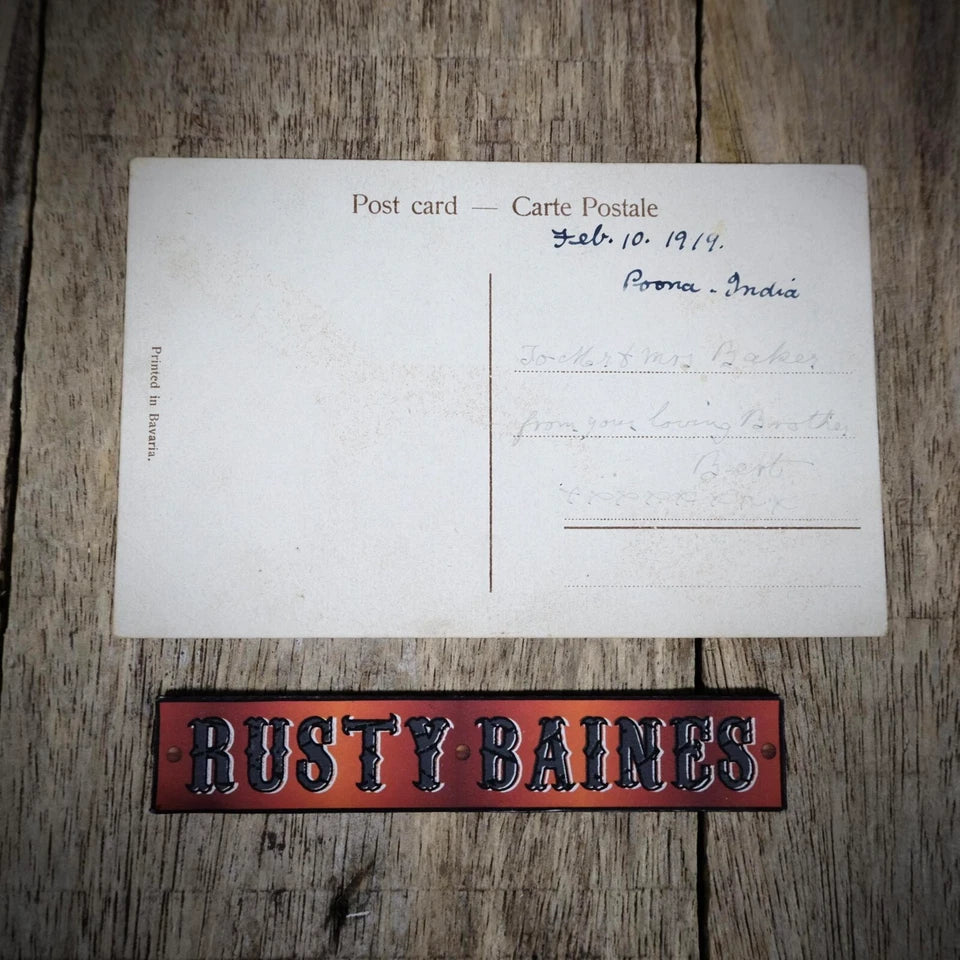 Post card — Carte Postale
Feb. 10. 1919.
Poona - India
To Mr & Mrs Baker
from your loving Brother
Bert
xxxxxxxxx
Printed in Bavaria.
RUSTY BAINES